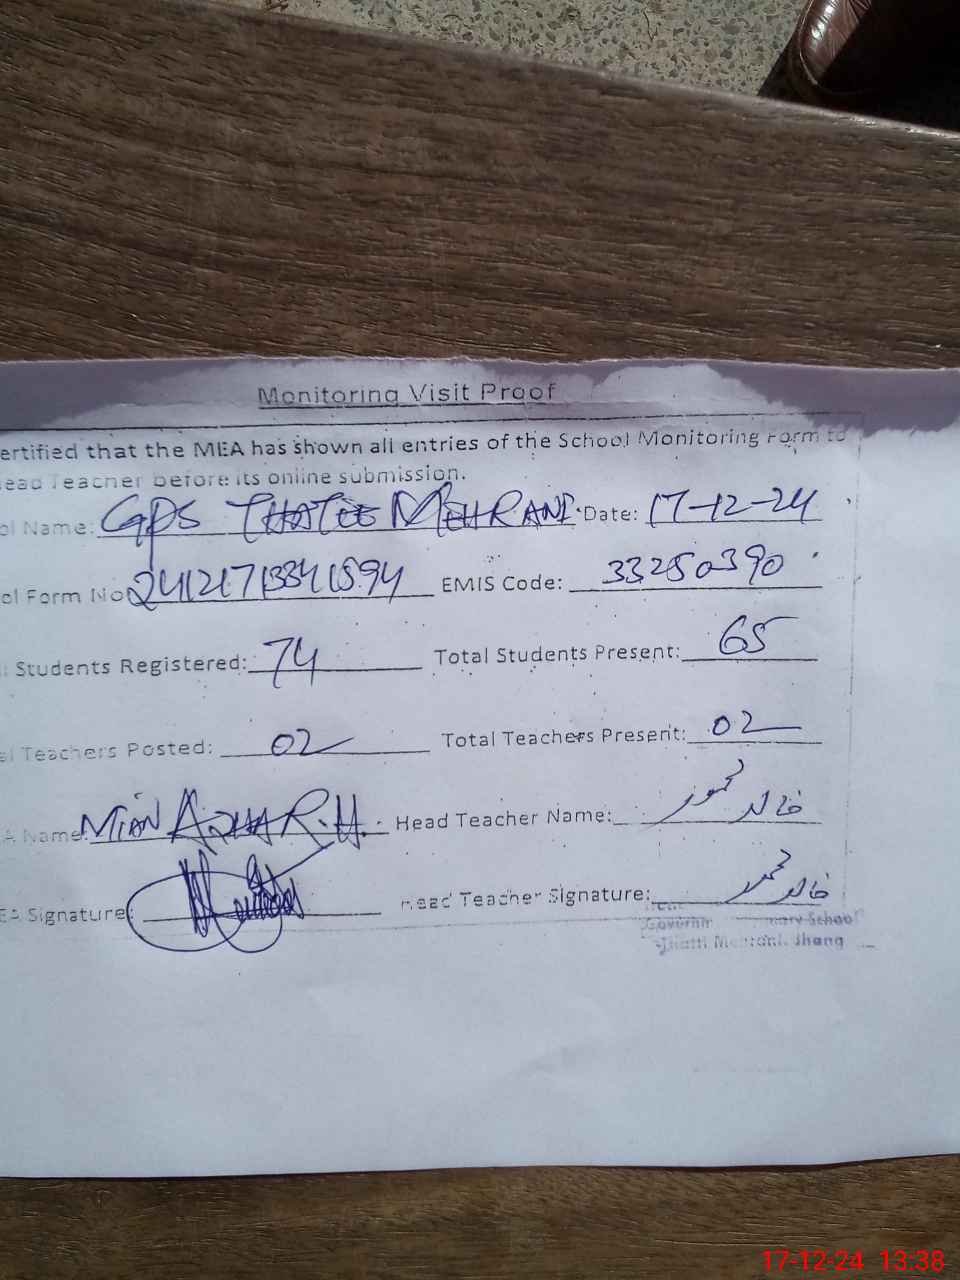 Monitoring Visit Proof
ertified that the MEA has shown all entries of the School Monitoring Form to
ead Teacher before its online submission.
ol Name: GPS THATEE MEHRANI Date: 17-12-24
ol Form No 24121713341594 EMIS Code: 33250390
Students Registered: 74 Total Students Present: 65
al Teachers Posted: 02 Total Teachers Present: 02
A Name: MIAN AZHAR.H. Head Teacher Name: خالد محمود
EA Signature: Head Teacher Signature: خالد محمود
mary School
Jhang
17-12-24 13:38